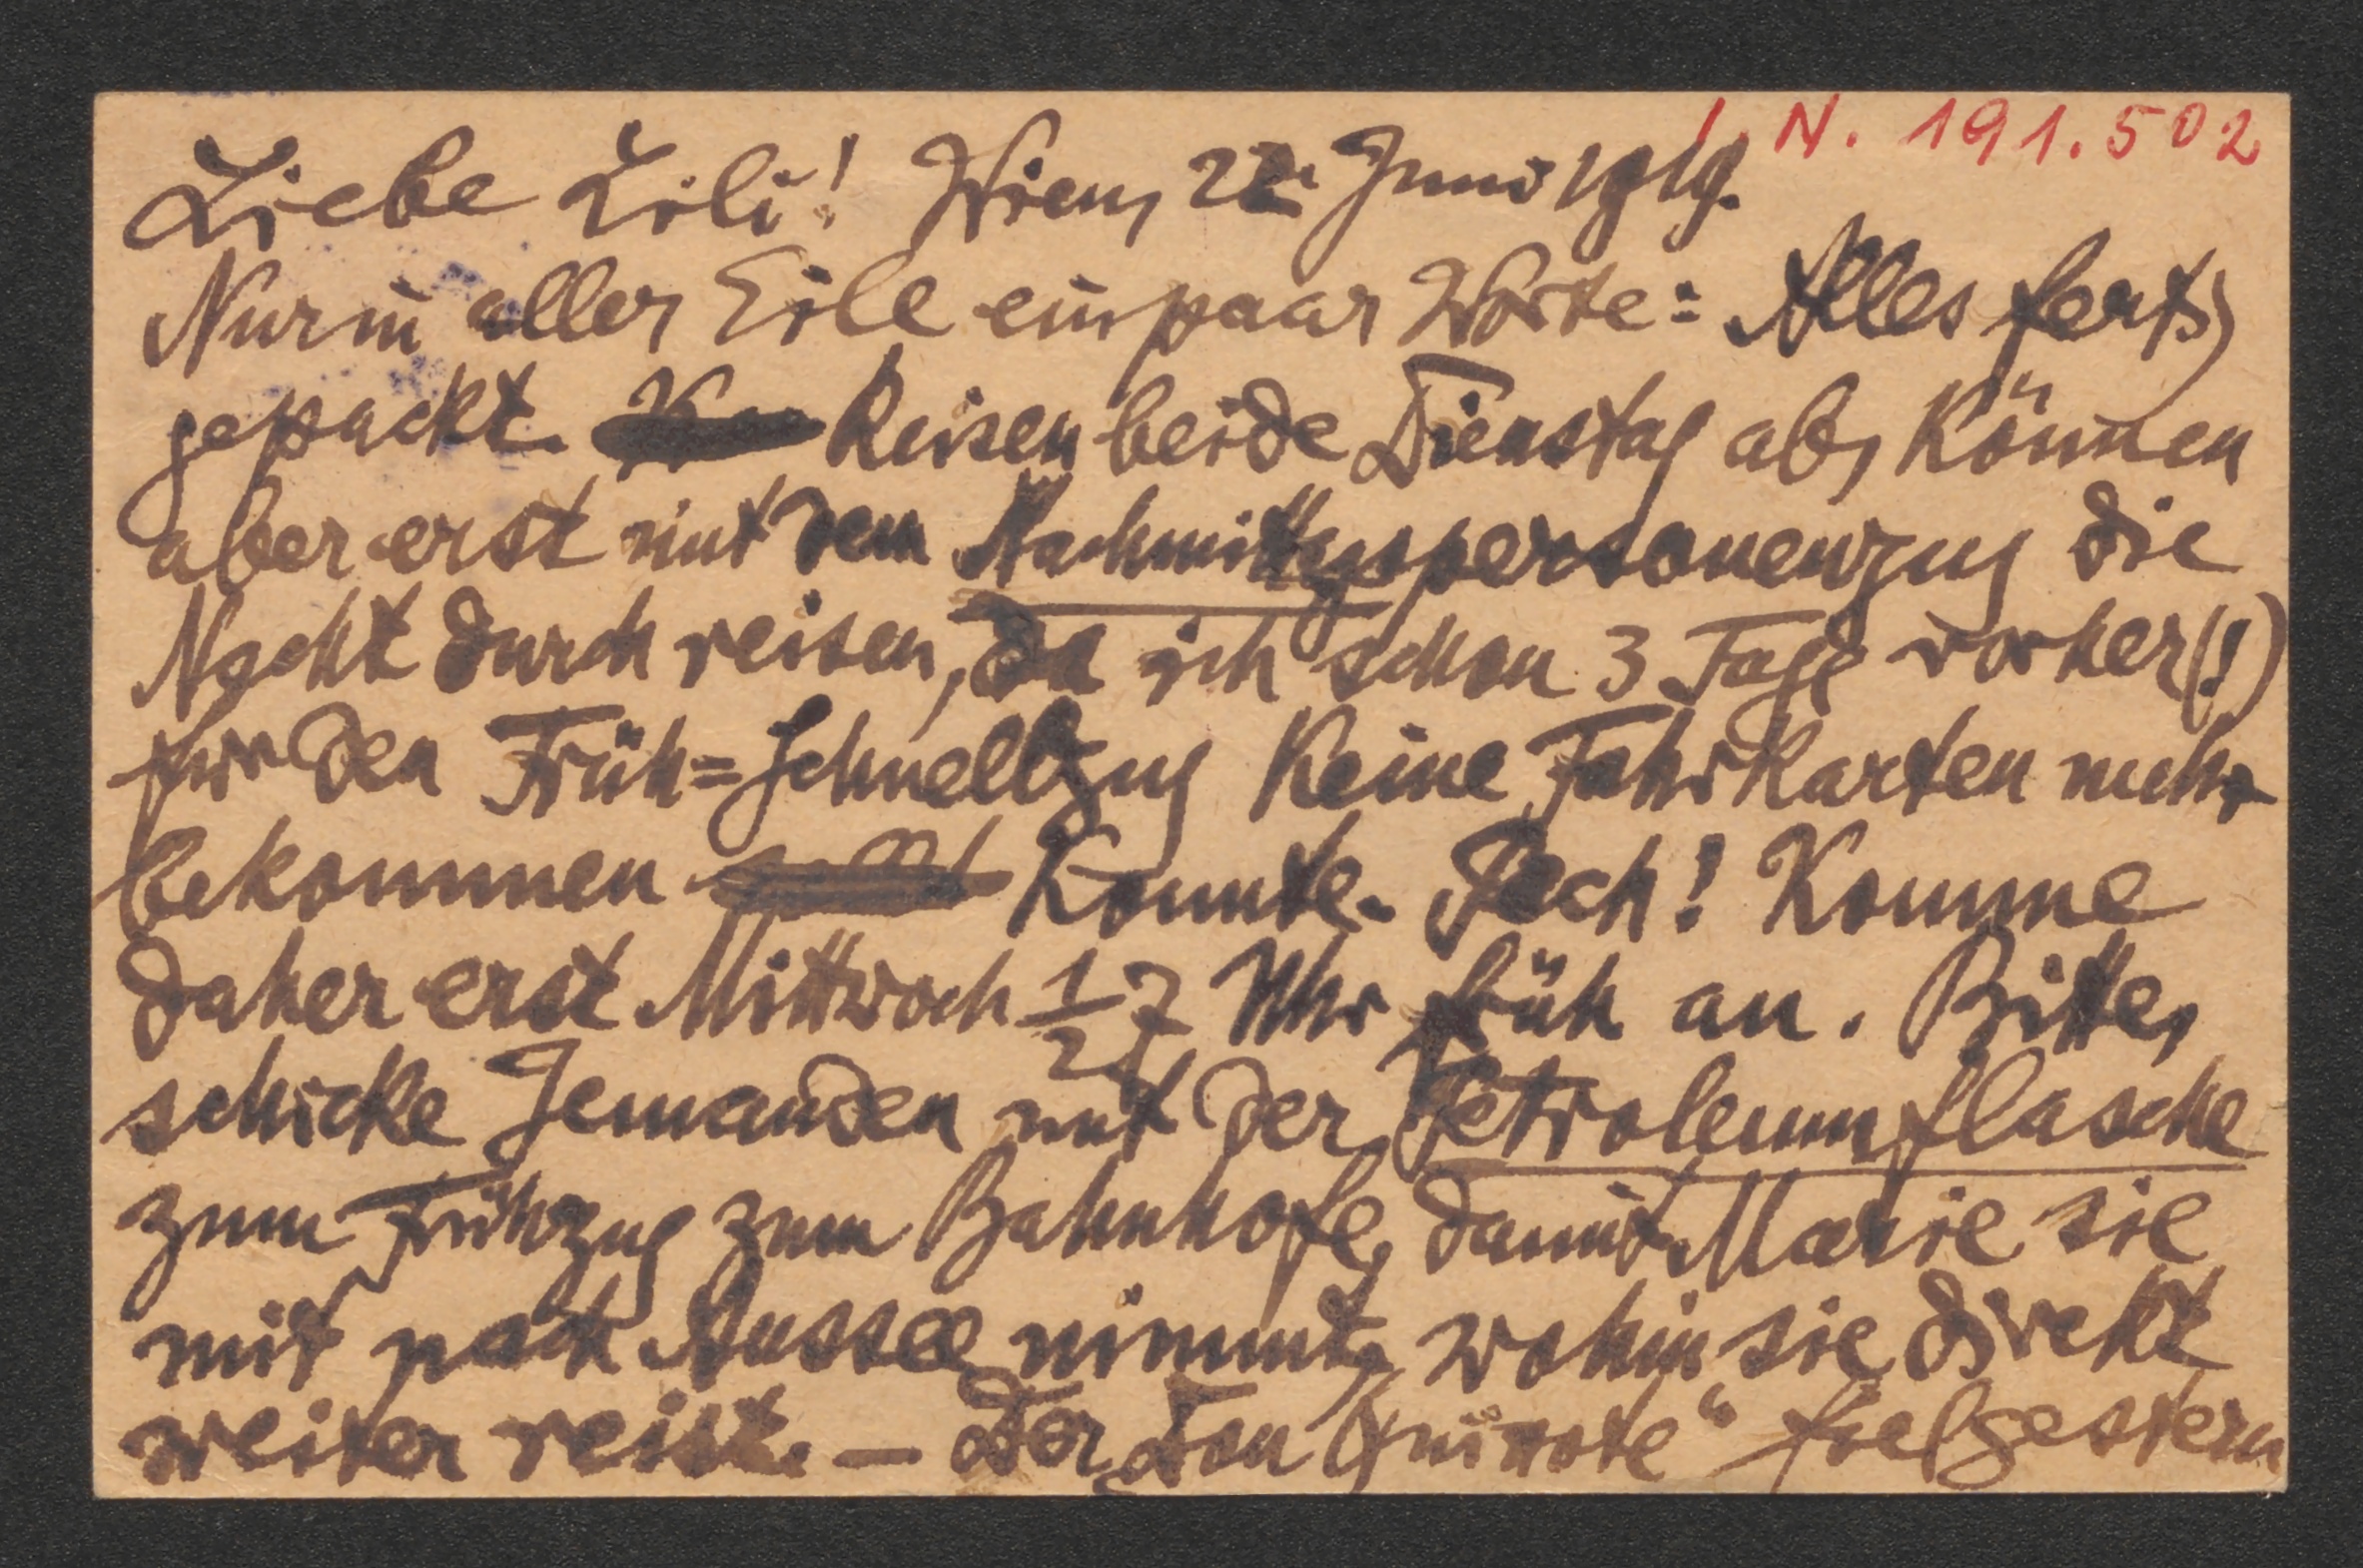 I. N. 191.502
Liebe Lili! Wien, 22. Juni 1919.
Nur in aller Eile ein paar Worte: Alles fertig
gepackt. Reisen beide Dienstag ab, können
aber erst mit dem Nachmittagspersonenzug die
Nacht durch reisen, da ich schon 3 Tage vorher (!)
für den Früh=Schnellzug keine Fahrkarten mehr
bekommen konnte. Pech! Komme
daher erst Mittwoch 1/2 7 Uhr früh an. Bitte,
schicke Jemanden mit der Petroleumflasche
zum Frühzug zum Bahnhofe, damit Marie sie
mit nach Aussee nimmt, wohin sie direkt
weiter reist. — Der „Don Quixote“ fiel gestern